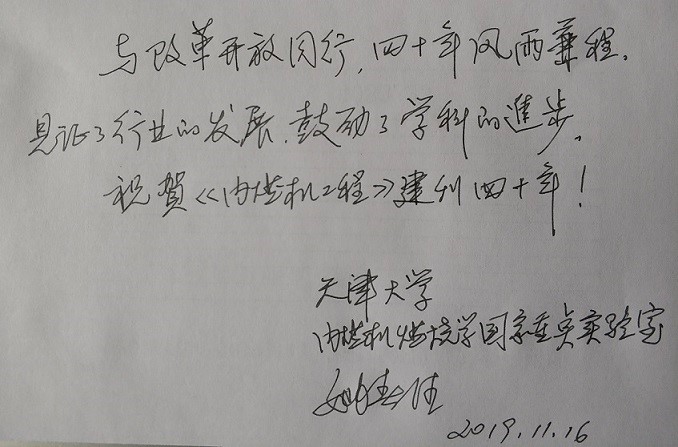 与改革开放同行，四十年风雨兼程，
见证了行业的发展，鼓励了学科的進步。
祝賀《内燃机工程》建刊四十年！
天津大学
内燃机燃烧学国家重点实验室
姚春德
2019.11.16